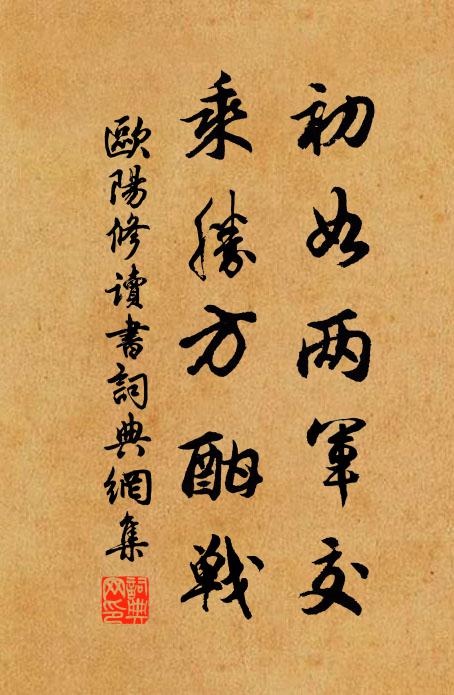 初如两軍交
乘勝方酣戰
歐陽修讀書詞典網集
詞典網印